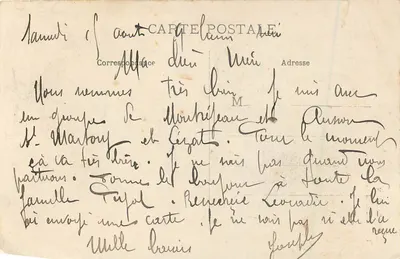 Samedi 15 août 9 heures
CARTE POSTALE
Ma
Correspondance Adresse
Nous sommes très bien. Je suis avec
M
un groupe de Montréjeau et
St. Martory et Cazat. Pour le moment
ça va très bien. Je ne sais pas quand nous
partirons. Donne le bonjour à toute la
famille Pujol. Remercie Léocadie. Je lui
ai envoyé une carte. Je ne sais pas si elle l'a
reçue
Mille baisers Joseph